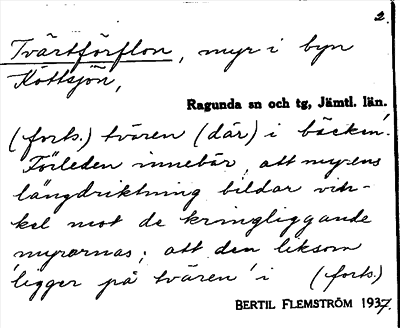 2.
Tvärtförflon, myr i byn
Köttsjön,
Ragunda sn och tg, Jämtl. län.
(forts.) tvären (där) i bäcken!
Förleden innebär, att myrens
längdriktning bildar vin-
kel mot de kringliggande
myrarnas; att den liksom
'ligger på tvären' i (forts.)
BERTIL FLEMSTRÖM 1937.